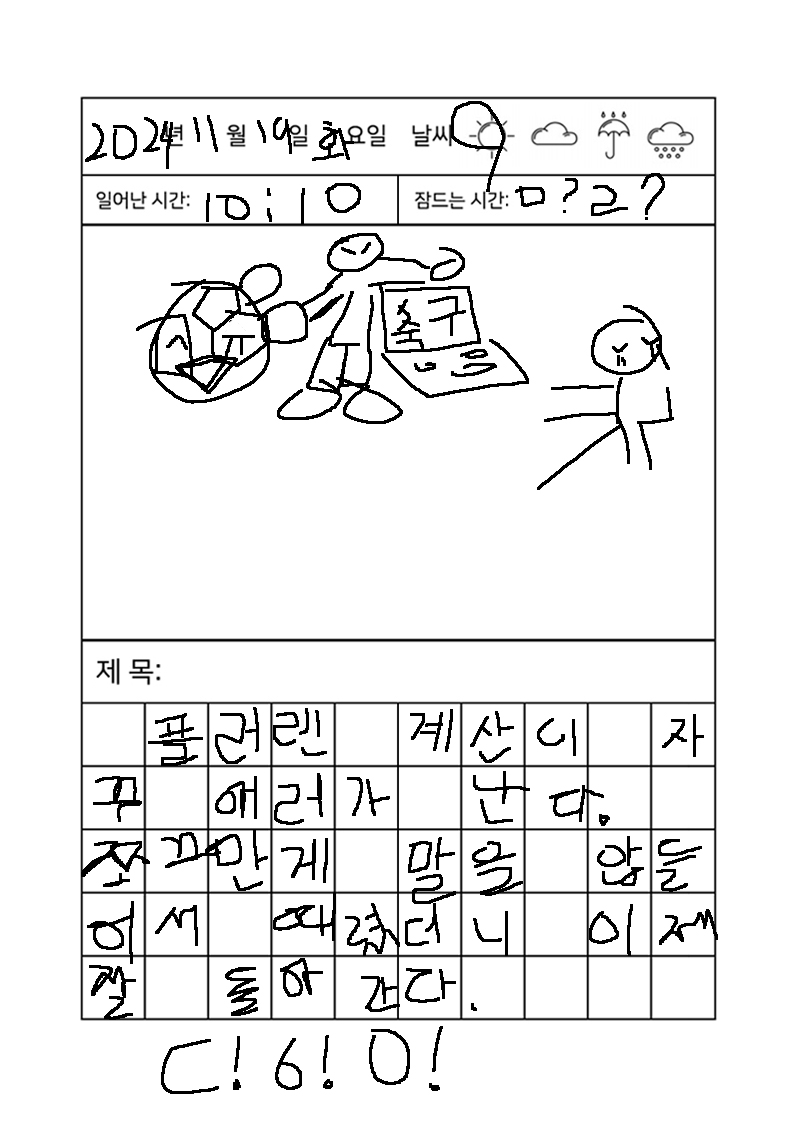 2024년 11월 19일 화요일 날씨
일어난 시간: 10:10 잠드는 시간: ㅁ?ㄹ?
축구
ㅠ
제 목:
플러린 계산이 자
꾸 애러가 난다.
쪼끄만게 말을 않들
어서 때렸더니 이제
잘 돌아간다.
C!6!O!